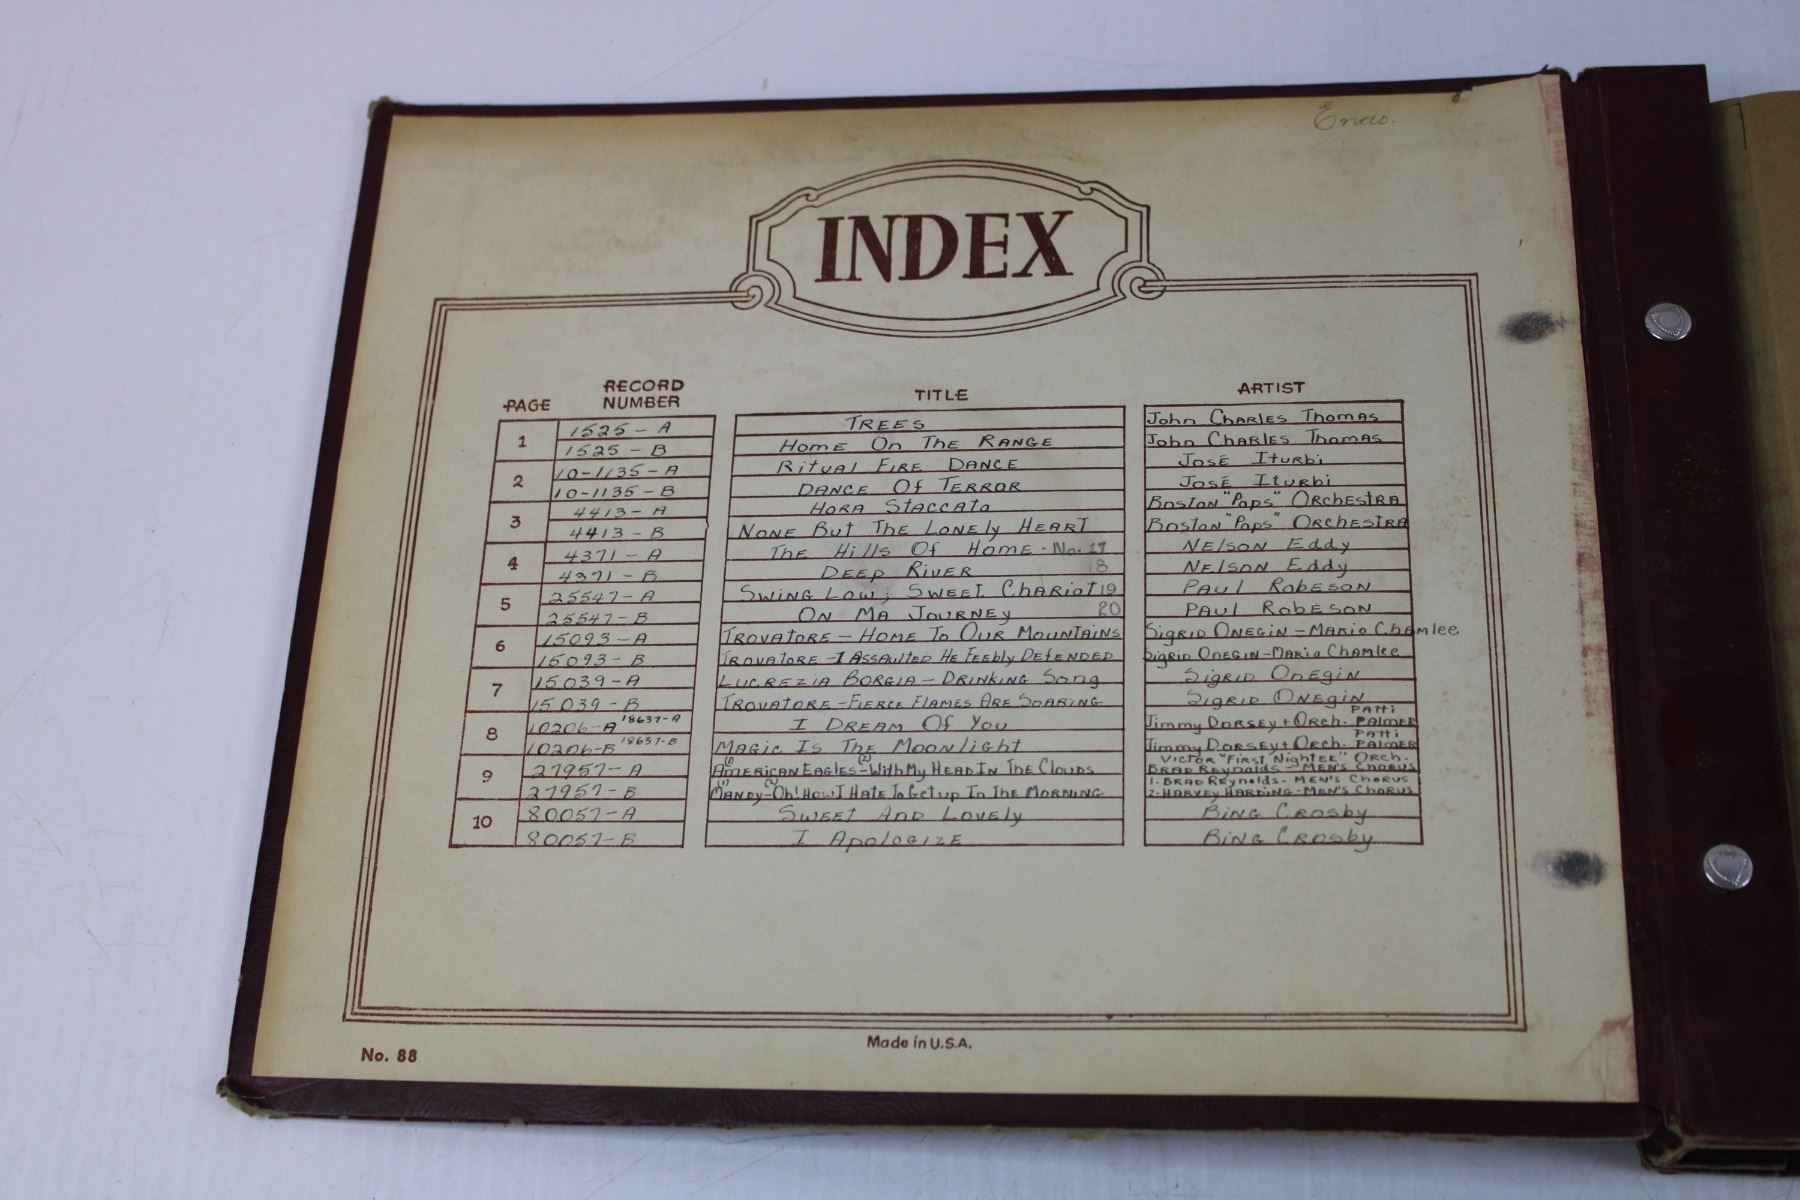 Endo.
INDEX
PAGE RECORD NUMBER TITLE ARTIST
1 1525-A TREES John Charles Thomas
1525-B Home On The Range John Charles Thomas
2 10-1135-A Ritual Fire Dance José Iturbi
10-1135-B Dance Of Terror José Iturbi
3 4413-A Hora Staccato Boston "Pops" Orchestra
4413-B None But The Lonely Heart Boston "Pops" Orchestra
4 4371-A The Hills Of Home - No. 17 Nelson Eddy
4371-B Deep River 18 Nelson Eddy
5 25547-A Swing Low, Sweet Chariot 19 Paul Robeson
25547-B On Ma Journey 20 Paul Robeson
6 15093-A Trovatore - Home To Our Mountains Sigrid Onegin - Mario Chamlee
15093-B Trovatore - I Assaulted He Feebly Defended Sigrid Onegin - Mario Chamlee
7 15039-A Lucrezia Borgia - Drinking Song Sigrid Onegin
15039-B Trovatore - Fierce Flames Are Soaring Sigrid Onegin
8 10206-A 18637-A I Dream Of You Jimmy Dorsey + Orch. Patti Palmer
10206-B 18637-B Magic Is The Moonlight Jimmy Dorsey + Orch. Patti Palmer
9 27957-A (1) American Eagles - (2) With My Head In The Clouds Victor "First Nighter" Orch. Brad Reynolds - Men's Chorus
27957-B (1) Mandy - (2) Oh! How I Hate To Get up In The Morning 1. Brad Reynolds - Men's Chorus 2. Harvey Harding - Men's Chorus
10 80057-A Sweet And Lovely Bing Crosby
80057-B I Apologize Bing Crosby
Made in U.S.A.
No. 88